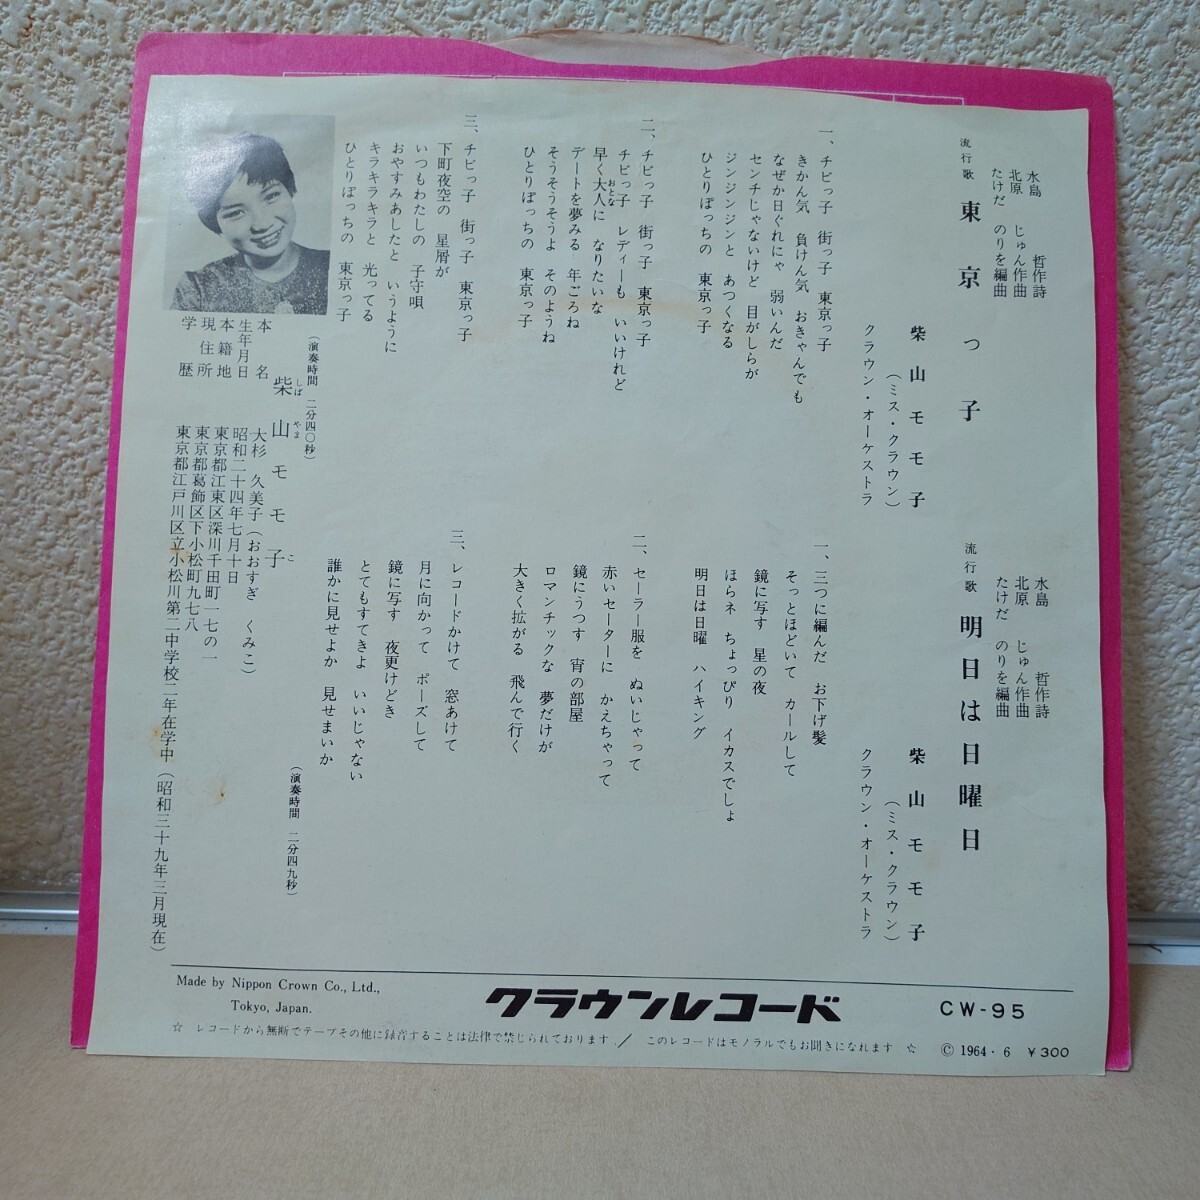 流行歌 東京っ子
水島 哲作詩
北原 じゅん作曲
たけだ のりを編曲
柴山モモ子
(ミス・クラウン)
クラウン・オーケストラ
一、チビっ子 街っ子 東京っ子
きかん気 負けん気 おきゃんでも
なぜか日ぐれにゃ 弱いんだ
センチじゃないけど 目がしらが
ジンジンジンと あつくなる
ひとりぼっちの 東京っ子
二、チビっ子 街っ子 東京っ子
チビっ子 レディーも いいけれど
早く大人に なりたいな
おとな
デートを夢みる 年ごろね
そうそうそうよ そのようね
ひとりぼっちの 東京っ子
三、チビっ子 街っ子 東京っ子
下町夜空の 星屑が
いつもわたしの 子守唄
おやすみあしたと いうように
キラキラキラと 光ってる
ひとりぼっちの 東京っ子
(演奏時間 二分四〇秒)
流行歌 明日は日曜日
水島 哲作詩
北原 じゅん作曲
たけだ のりを編曲
柴山モモ子
(ミス・クラウン)
クラウン・オーケストラ
一、三つに編んだ お下げ髪
そっとほどいて カールして
鏡に写す 星の夜
ほらネ ちょっぴり イカスでしょ
明日は日曜 ハイキング
二、セーラー服を ぬいじゃって
赤いセーターに かえちゃって
鏡にうつす 宵の部屋
ロマンチックな 夢だけが
大きく拡がる 飛んで行く
三、レコードかけて 窓あけて
月に向かって ポーズして
鏡に写す 夜更けどき
とてもすてきよ いいじゃない
誰かに見せよか 見せまいか
(演奏時間 二分四九秒)
柴山モモ子
しば やま こ
本名 大杉 久美子(おおすぎ くみこ)
生年月日 昭和二十四年七月十日
本籍地 東京都江東区深川千田町一七の一
現住所 東京都葛飾区下小松町九七八
学歴 東京都江戸川区立小松川第二中学校二年在学中(昭和三十九年三月現在)
Made by Nippon Crown Co., Ltd.,
Tokyo, Japan.
クラウンレコード
CW-95
☆ レコードから無断でテープその他に録音することは法律で禁じられております / このレコードはモノラルでもお聞きになれます ☆
© 1964・6 ￥300